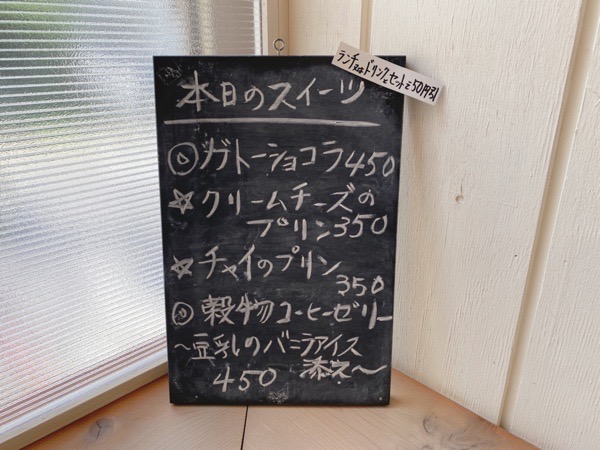 ランチ又はドリンクとセットで50円引
本日のスイーツ
◎ガトーショコラ450
☆クリームチーズの
プリン350
☆チャイのプリン
350
◎穀物コーヒーゼリー
～豆乳のバニラアイス
添え～
450